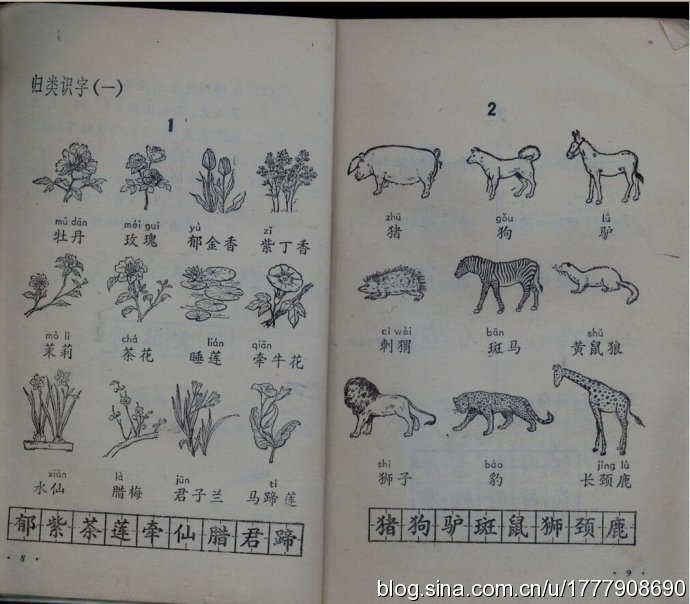 归类识字(一)
1
mǔ dān méi guī yù zǐ
牡丹 玫瑰 郁金香 紫丁香
mò lì chá lián qiān
茉莉 茶花 睡莲 牵牛花
xiān là jūn tí
水仙 腊梅 君子兰 马蹄莲
郁紫茶莲牵仙腊君蹄
· 8 ·
2
zhū gǒu lǘ
猪 狗 驴
cì wèi bān shǔ
刺猬 斑马 黄鼠狼
shī bào jǐng lù
狮子 豹 长颈鹿
猪狗驴斑鼠狮颈鹿
· 9 ·
blog.sina.com.cn/u/1777908690